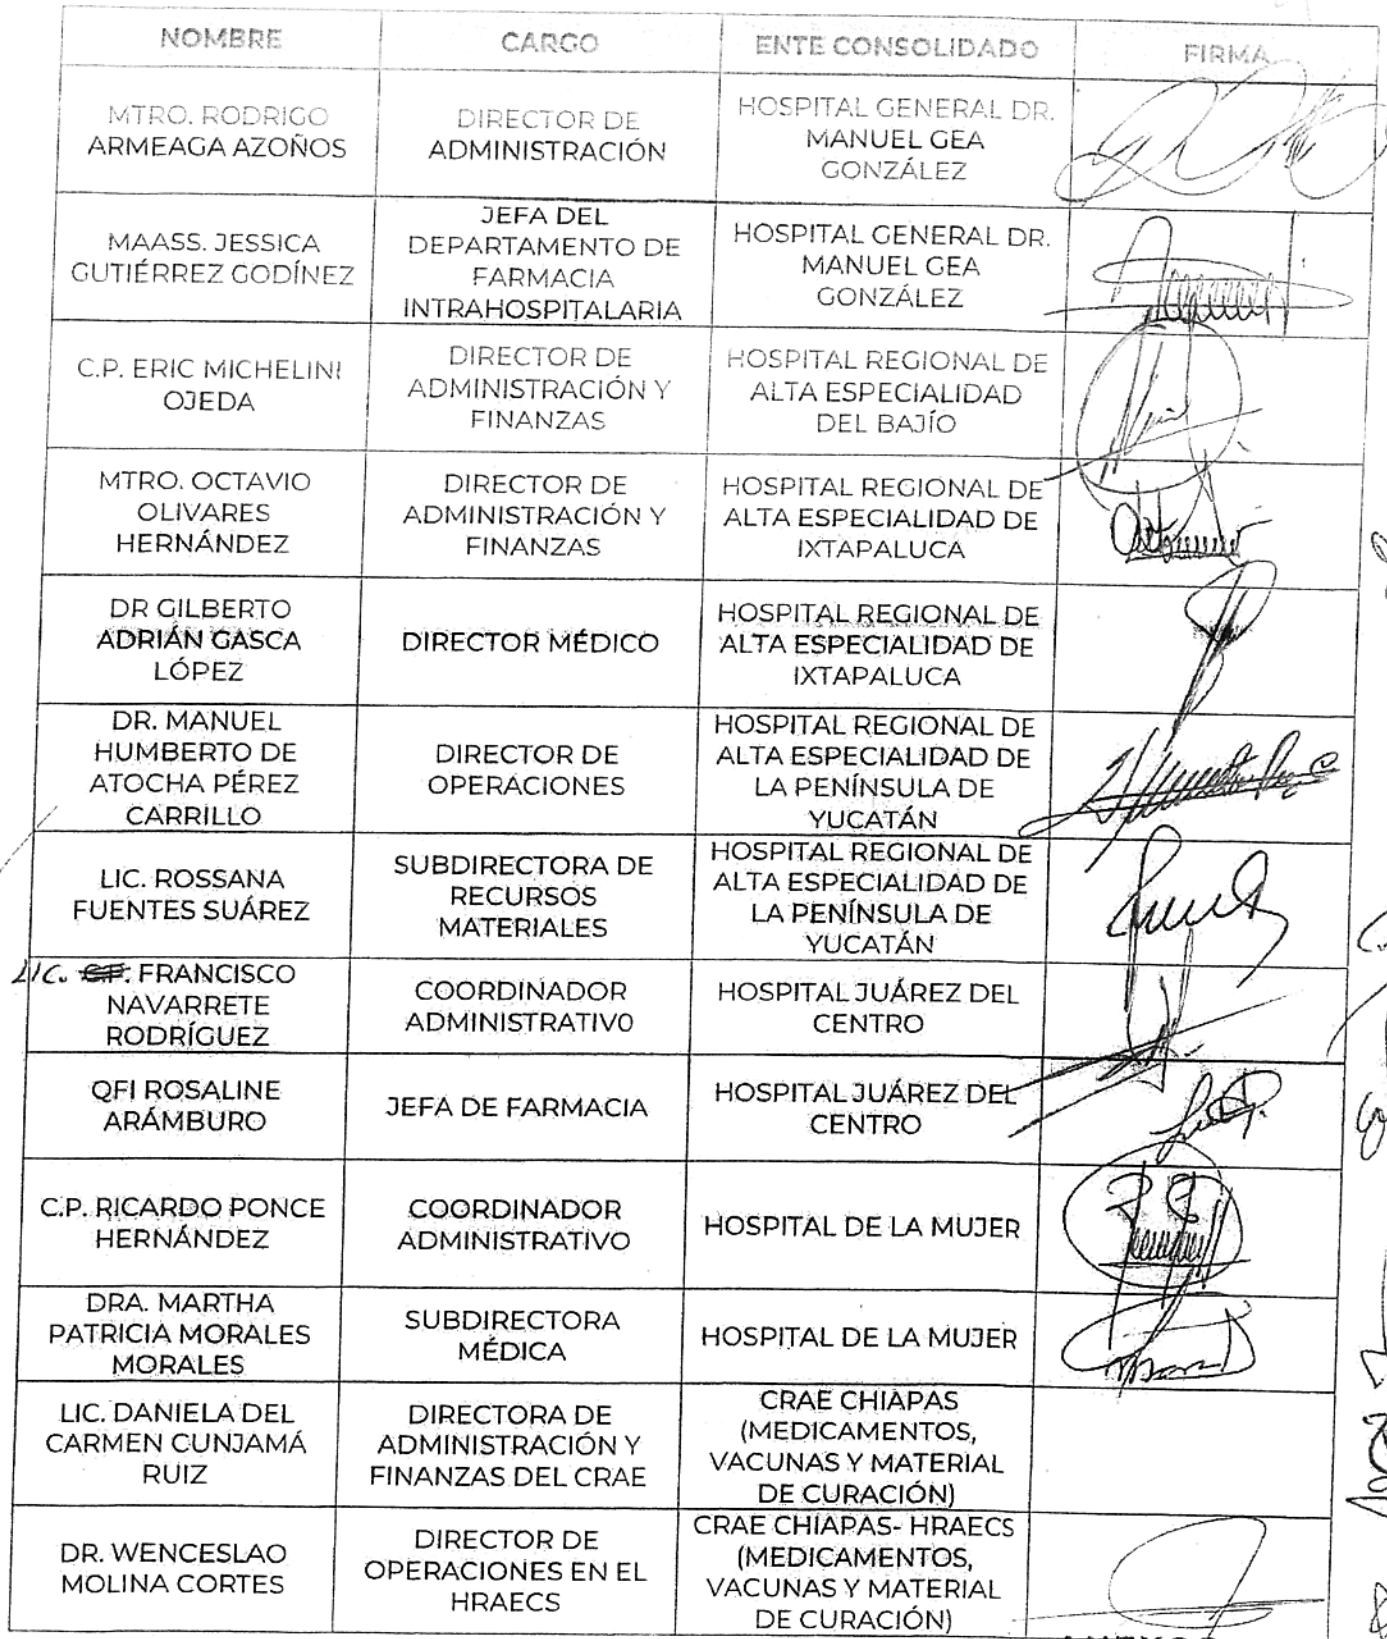 NOMBRE CARGO ENTE CONSOLIDADO FIRMA
MTRO. RODRIGO
ARMEAGA AZOÑOS
DIRECTOR DE
ADMINISTRACIÓN
HOSPITAL GENERAL DR.
MANUEL GEA
GONZÁLEZ
MAASS. JESSICA
GUTIÉRREZ GODÍNEZ
JEFA DEL
DEPARTAMENTO DE
FARMACIA
INTRAHOSPITALARIA
HOSPITAL GENERAL DR.
MANUEL GEA
GONZÁLEZ
C.P. ERIC MICHELINI
OJEDA
DIRECTOR DE
ADMINISTRACIÓN Y
FINANZAS
HOSPITAL REGIONAL DE
ALTA ESPECIALIDAD
DEL BAJÍO
MTRO. OCTAVIO
OLIVARES
HERNÁNDEZ
DIRECTOR DE
ADMINISTRACIÓN Y
FINANZAS
HOSPITAL REGIONAL DE
ALTA ESPECIALIDAD DE
IXTAPALUCA
DR GILBERTO
ADRIÁN GASCA
LÓPEZ
DIRECTOR MÉDICO
HOSPITAL REGIONAL DE
ALTA ESPECIALIDAD DE
IXTAPALUCA
DR. MANUEL
HUMBERTO DE
ATOCHA PÉREZ
CARRILLO
DIRECTOR DE
OPERACIONES
HOSPITAL REGIONAL DE
ALTA ESPECIALIDAD DE
LA PENÍNSULA DE
YUCATÁN
LIC. ROSSANA
FUENTES SUÁREZ
SUBDIRECTORA DE
RECURSOS
MATERIALES
HOSPITAL REGIONAL DE
ALTA ESPECIALIDAD DE
LA PENÍNSULA DE
YUCATÁN
LIC. FRANCISCO
NAVARRETE
RODRÍGUEZ
COORDINADOR
ADMINISTRATIVO
HOSPITAL JUÁREZ DEL
CENTRO
QFI ROSALINE
ARÁMBURO
JEFA DE FARMACIA
HOSPITAL JUÁREZ DEL
CENTRO
C.P. RICARDO PONCE
HERNÁNDEZ
COORDINADOR
ADMINISTRATIVO
HOSPITAL DE LA MUJER
DRA. MARTHA
PATRICIA MORALES
MORALES
SUBDIRECTORA
MÉDICA
HOSPITAL DE LA MUJER
LIC. DANIELA DEL
CARMEN CUNJAMÁ
RUIZ
DIRECTORA DE
ADMINISTRACIÓN Y
FINANZAS DEL CRAE
CRAE CHIAPAS
(MEDICAMENTOS,
VACUNAS Y MATERIAL
DE CURACIÓN)
DR. WENCESLAO
MOLINA CORTES
DIRECTOR DE
OPERACIONES EN EL
HRAECS
CRAE CHIAPAS- HRAECS
(MEDICAMENTOS,
VACUNAS Y MATERIAL
DE CURACIÓN)